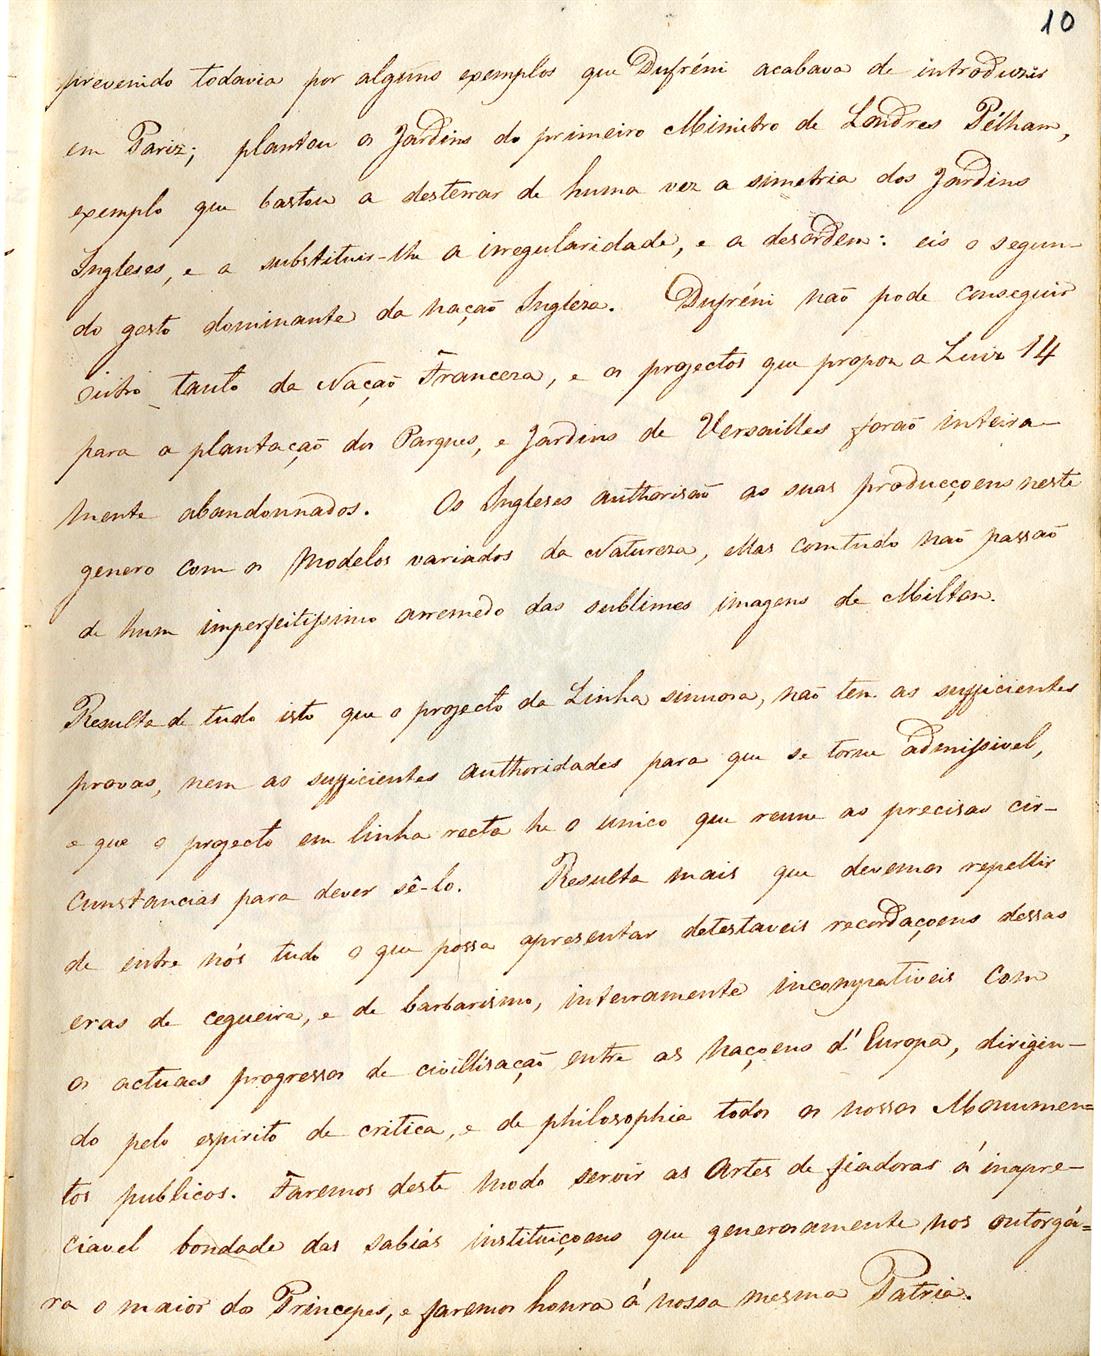 10
prevenido todavia por alguns exemplos que Dufréni acabava de introduzir
em Pariz; plantou os Jardins do primeiro Ministro de Londres Pélham,
exemplo que bastou a desterrar de huma vez a simetria dos Jardins
Ingleses, e a substituir-lhe a irregularidade, e a desordem: eis o segun-
do gosto dominante da nação Ingleza. Dufréni não pode conseguir
outro tanto da Nação Franceza, e os projectos que propoz a Luiz 14
para a plantação dos Parques, e Jardins de Versailles forão inteira-
mente abandonnados. Os Ingleses authorisão as suas producçoens neste
genero com os Modelos variados da Natureza, Mas comtudo não passão
de hum imperfeitissimo arremedo das sublimes imagens de Milton.
Resulta de tudo isto que o projecto da Linha sinuosa, não tem as sufficientes
provas, nem as sufficientes authoridades para que se torne admissivel,
e que o projecto em linha recta he o unico que reune as precisas cir-
cunstancias para dever sê-lo. Resulta mais que devemos repellir
de entre nós tudo o que possa apresentar detestaveis recordaçoens dessas
eras de cegueira, e de barbarismo, inteiramente incompativeis com
os actuaes progressos de civillisação entre as Naçoens d'Europa, dirigin-
do pelo espirito de critica, e de philosophia todos os nossos Monumen=
tos publicos. Faremos deste modo servir as Artes de fiadoras á inapre-
ciavel bondade das sabias instituiçoens que generosamente nos outorgá=
ra o maior dos Princepes, e faremos honra á nossa mesma Patria.